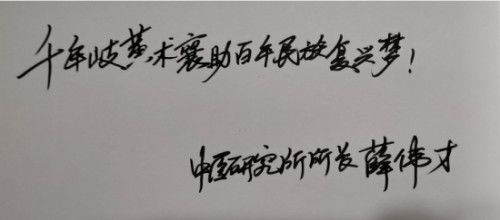 千年岐黄术襄助百年民族复兴梦！
中医研究所所长薛伟才